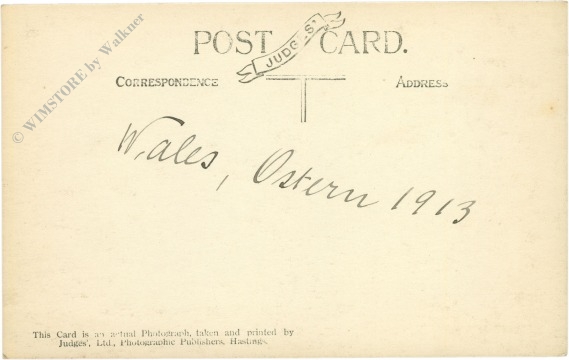 © WIMSTORE by Walkner
POST CARD.
JUDGES'
CORRESPONDENCE ADDRESS
Wales, Ostern 1913
This Card is an actual Photograph, taken and printed by
Judges', Ltd., Photographic Publishers, Hastings.